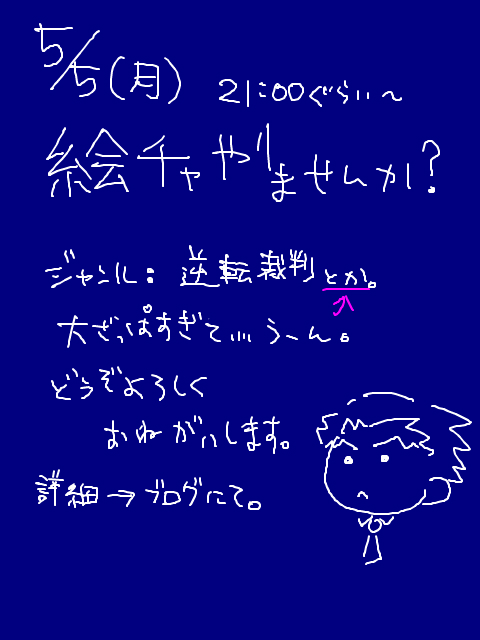 5/5(月) 21:00ぐらい〜
絵チャやりませんか?
ジャンル:逆転裁判とか。
大ざっぱすぎて…うーん。
どうぞよろしく
おねがいします。
詳細→ブログにて。